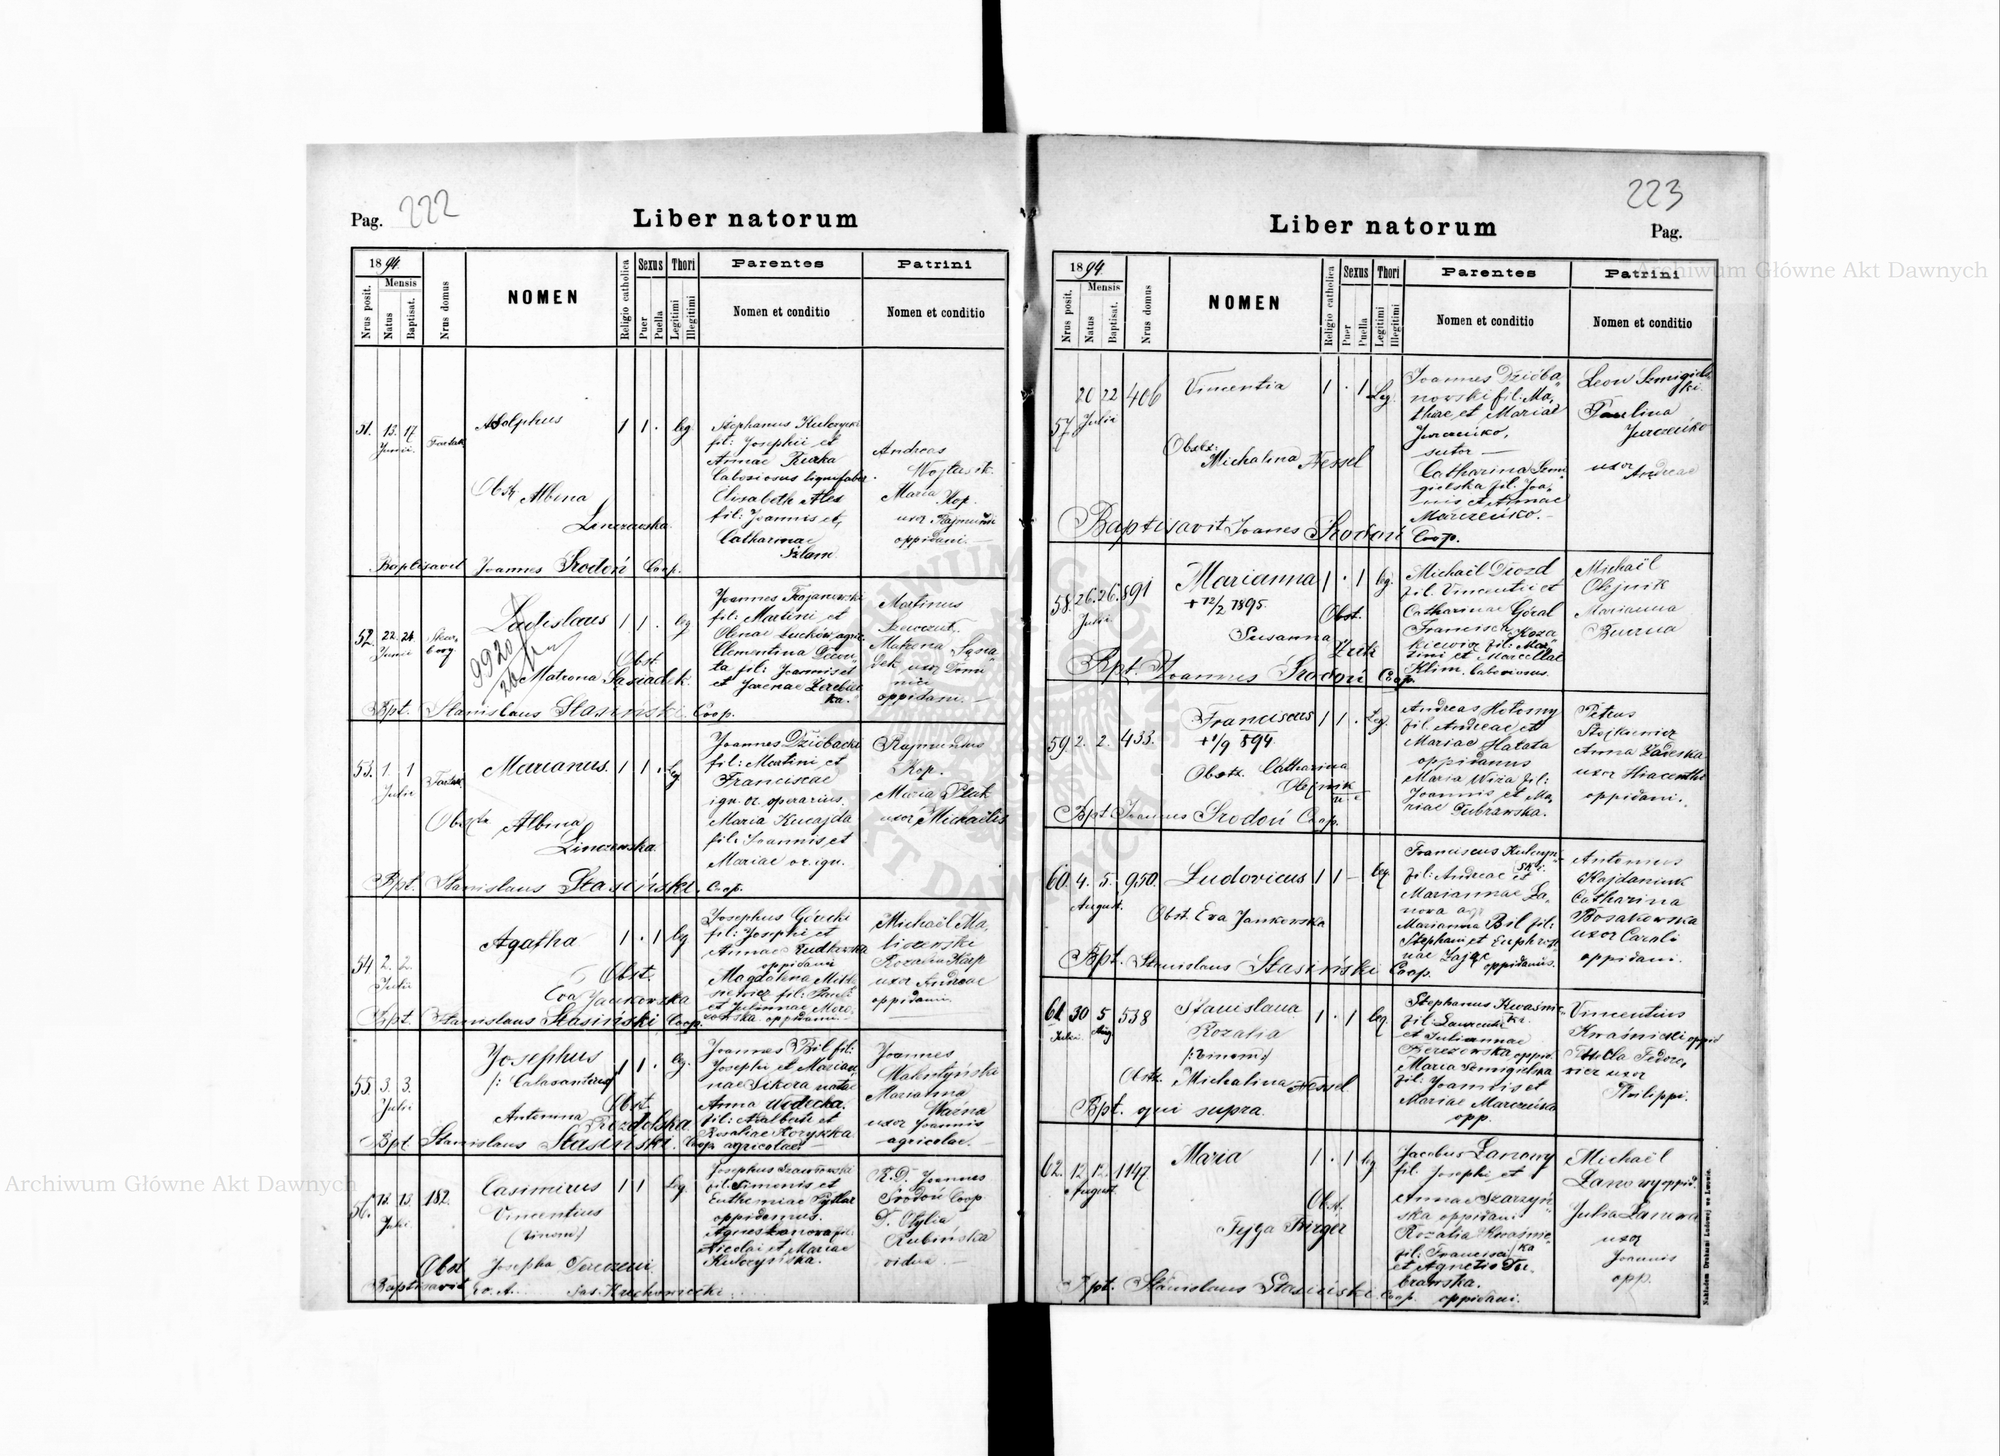 Pag. 222
Liber natorum
1894.
Nrus posit.
Mensis
Natus
Baptisat.
Nrus domus
NOMEN
Religio catholica
Sexus
Puer
Puella
Thori
Legitimi
Illegitimi
Parentes
Nomen et conditio
Patrini
Nomen et conditio
51. 13. 17 Junii
Adolphus
1 1 . leg
Stephanus
fil: Josephi et
Annae
Laboriosus lignifaber.
Elisabeth
fil: Joannis et
Catharinae
Andreas
Wojtasik
Maria Kop.
uxor
oppidani.
Obst. Albina
Linczewska
Baptisavit Joannes Srodoń Coop.
52. 22. 24. Junii
Ladislaus
9920
26
1 1 . leg
Joannes Trojanowski
fil: Martini et
Olenae
Clementina
fil: Joannis et
et
Martinus
Matrona Sąsia
dek uxor Domi
nici
oppidani.
Obst.
Matrona Sąsiadek.
Bpt. Stanislaus Stasiński Coop.
53. 1. 1 Julii
Marianus.
1 1 . leg
Joannes Dzióbacki
fil: Martini et
Franciscae
ign. or. operarius.
Maria Kucajda
fil: Joannis et
Mariae or. ign.
Rajmundus
Kop.
Maria Ptak
uxor Michaelis
Albina
Linczewska
Bpt. Stanislaus Stasiński. Coop.
54 2. 2. Julii
Agatha
1 . 1 leg
Josephus Górecki
fil: Josephi et
Annae Rudkowska
oppidani
Magdalena
fil:
et Julianae
oppidani.
Michaël Ma,
liczewski
Rozalia Karp
uxor Andreae
oppidani
Obst.
Eva Jankowska
Bpt. Stanislaus Stasiński Coop.
55. 3. 3. Julii
Josephus
/: Calasantius/
1 1 . leg.
Joannes Bil fil:
Josephi et Marian
nae Sikora natae
Anna
fil: Adalberti et
Rosaliae
agricolae
Joannes
Marianna
Ważna
uxor Joannis
agricolae.
Obst.
Antonina
Rozdolska.
Bpt. Stanislaus Stasiński. Coop.
56. 12. 13. Julii
182.
Casimirus
Vincentius
(binom)
1 1 leg
Josephus
fil: Simonis et
Euthemiae
oppidanus.
Agnes
Nicolai et Mariae
Kulczyńska.
R. D. Joannes
Srodoń Coop
D. Otylia
Rubińska
vidua.
Obst. Josepha
Baptisavit
223
Liber natorum
Pag.
1894.
Nrus posit.
Mensis
Natus
Baptisat.
Nrus domus
NOMEN
Religio catholica
Sexus
Puer
Puella
Thori
Legitimi
Illegitimi
Parentes
Nomen et conditio
Patrini
Nomen et conditio
57 20 22 Julii
406
Vincentia
1 . 1 Leg.
Joannes Dzióba
nowski fil: Ma,
thae et Mariae
Jurczeńko,
sutor —
Catharina Semi
gielska fil. Joa,
nnis et Annae
Marczeńko. —
Leon Semigiels
ki
Paulina
Jurczeńko
uxor
Andreae
Michalina Nessel
Baptisavit Joannes Srodoń Coop.
58. 26. 26. Julii
891
Marianna
+ 12/2 1895.
1 . 1 leg.
Michaël Drozd
fil. Vincentii et
Catharinae Góral
Francisca Koza
kiewicz fil: Mar
tini et Marcellae
Klim. Laboriosus.
Michaël
Olejnik
Marianna
Obst.
Susanna
Bpt. Joannes Srodoń Coop.
59. 2. 2. 433.
Franciscus
+ 1/9 894.
1 1 . Leg.
Andreas Hołomy
fil Andreae et
Mariae Hałata
oppidanus
Maria Wiza fil:
Joannis et Ma,
riae Dubrawska.
Petrus
Stojkiewicz
Anna Zadorska
uxor Hiacenthi
oppidani.
Obstx. Catharina
Olejnik
Bpt Joannes Srodoń Coop.
60. 4. 5. August.
950.
Ludovicus
1 1 — leg
Franciscus Kulczyń
ski
fil: Andreae et
Mariannae Ła,
nova agr
Marianna Bil fil:
Stephani et Euphrosi
nae Zając oppidanus.
Antonius
Hajdaniuk
Catharina
Bosakowska
uxor Caroli
oppidani.
Obst. Eva Jankowska
Bpt. Stanislaus Stasiński Coop.
61. 30 Julii 5 Aug.
538
Stanislava
Rozalia
/: binom:/
1 . 1 leg
Stephanus Kwaśnic
ki
fil: Laurentii
et Juliannae
Berezowska oppid.
Maria Semigielska
fil: Joannis et
Mariae Marczeńko
opp.
Vincentius
Kwaśnicki oppid
Thecla Fedoro,
wicz uxor
Philippi.
Obstx. Michalina Nessel
Bpt. qui supra.
62. 12 12. August.
1147
Maria
1 . 1 leg
Jacobus Łanowy
fil. Josephi et
Annae Szarzyń
ska oppidani
Rozalia Kwaśnic
ka
fil: Francisci
et Agnetis Du,
brawska.
oppidani.
Michaël
Łanowy oppid.
Julia Łanowa
uxor
Joannis
opp.
Obst.
Fejga Birger
Bpt. Stanislaus Stasiński. Coop.
Nakładem Drukarni Ludowej we Lwowie.
Archiwum Główne Akt Dawnych
Archiwum Główne Akt Dawnych
ARCHIWUM GŁÓWNE AKT DAWNYCH